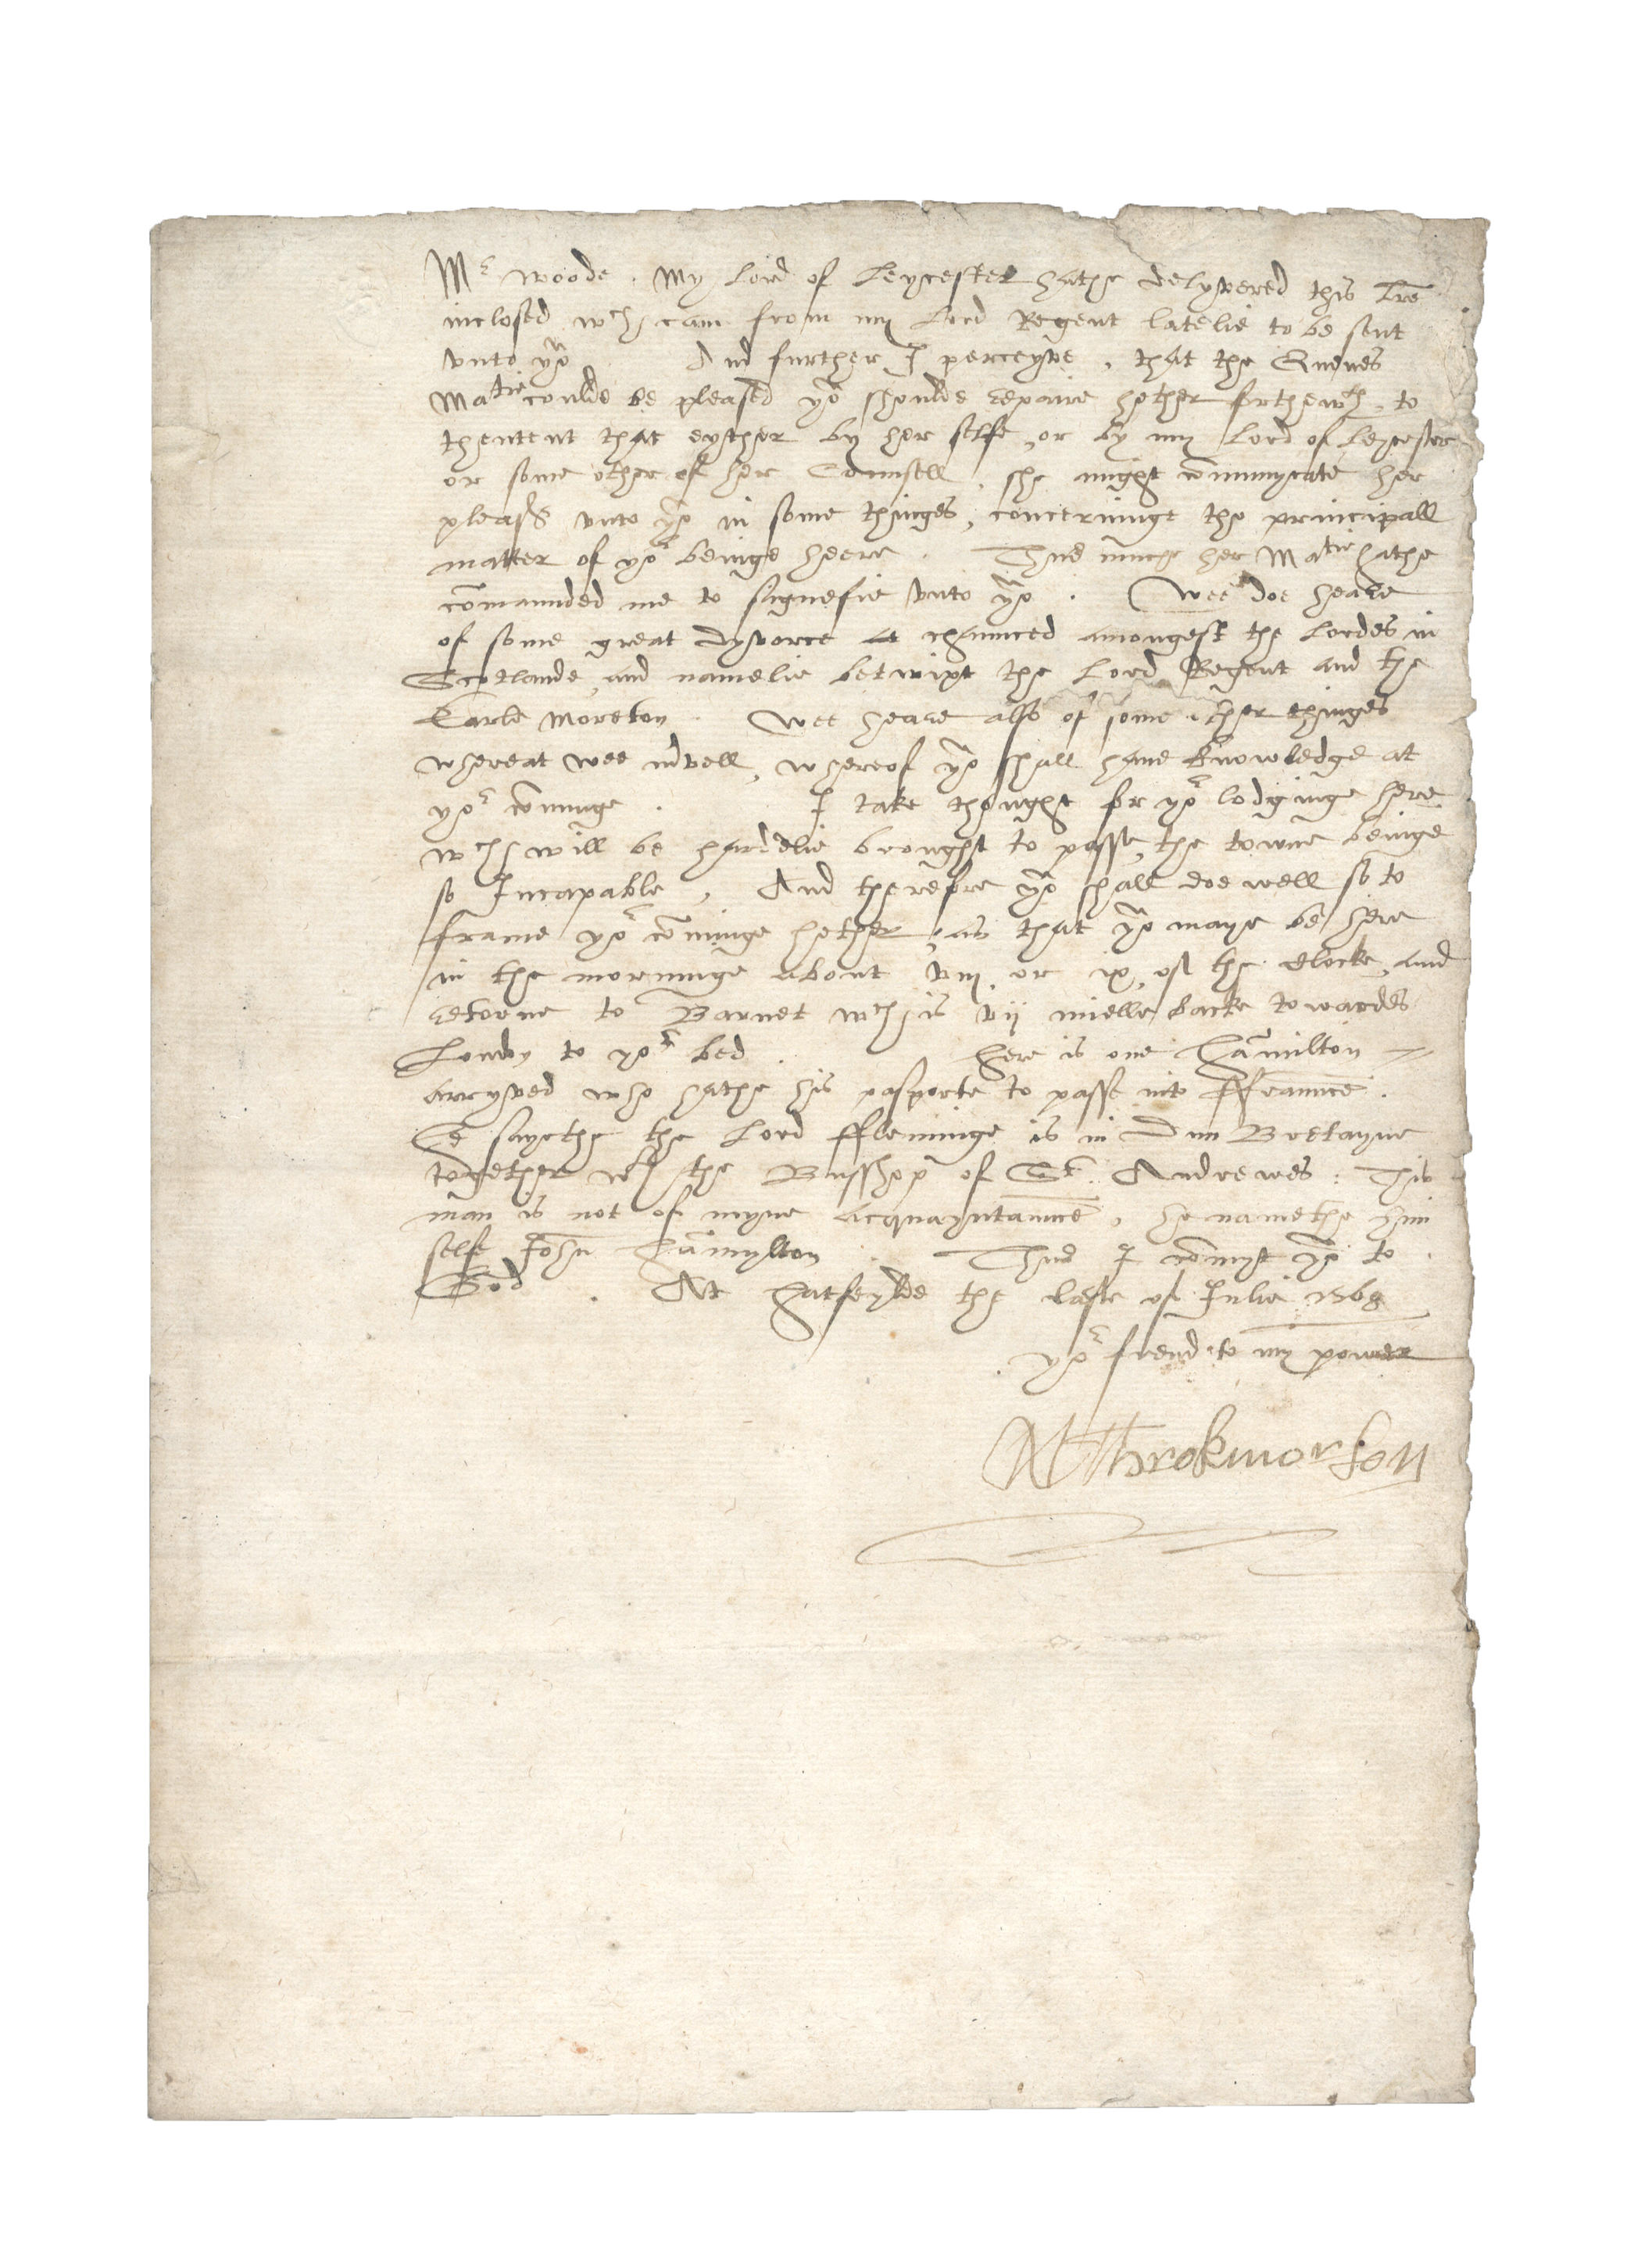 Mr Woode . My Lord of Leycester hathe delyvered this lre
inclosed wch cam from my Lord Regent latelie to be sent
vnto yow . And further I perceyve , that the Quenes
Matie coulde be pleased yow shoulde repaire hether forthewth , to
thentent that eyther by her selfe , or by my Lord of Leycester
or some other of her Counsell , she might comunycate her
pleasr vnto yow in some thinges , concerninge the principall
matter of yor beinge heere . Thus muche her Matie hathe
comaunded me to signefie vnto yow . Wee doe heare
of some great dyvorce chaunced amongest the Lordes in
Scotlande , and namelie betwixt the Lord Regent and the
Earle Moreton . Wee heare also of some other thinges
whereat wee mvell , whereof yow shall have knowledge at
yor cominge . I take thought for yor lodginge here
wch will be hardelie brought to passe , the towne beinge
so Incapable , And therefore yow shall doe well so to
frame yor cominge hether , as that yow maye be here
in the morninge about viij or ix of the clocke , and
retorne to Barnet wch is vij mielle backe towardes
London to yor bed . Here is one Hamilton
arryved who hathe his pasporte to passe into ffraunce .
He saythe the Lord ffleminge is in Dun Bretayne
together wth the Busshop of St . Andrewes : This
man is not of myne acquayntaunce , he namethe him
selfe John Hamylton . Thus I comyt yow to
God . At Hatfeylde the laste of Julie 1568
yor frend to my power
NThrokmorton